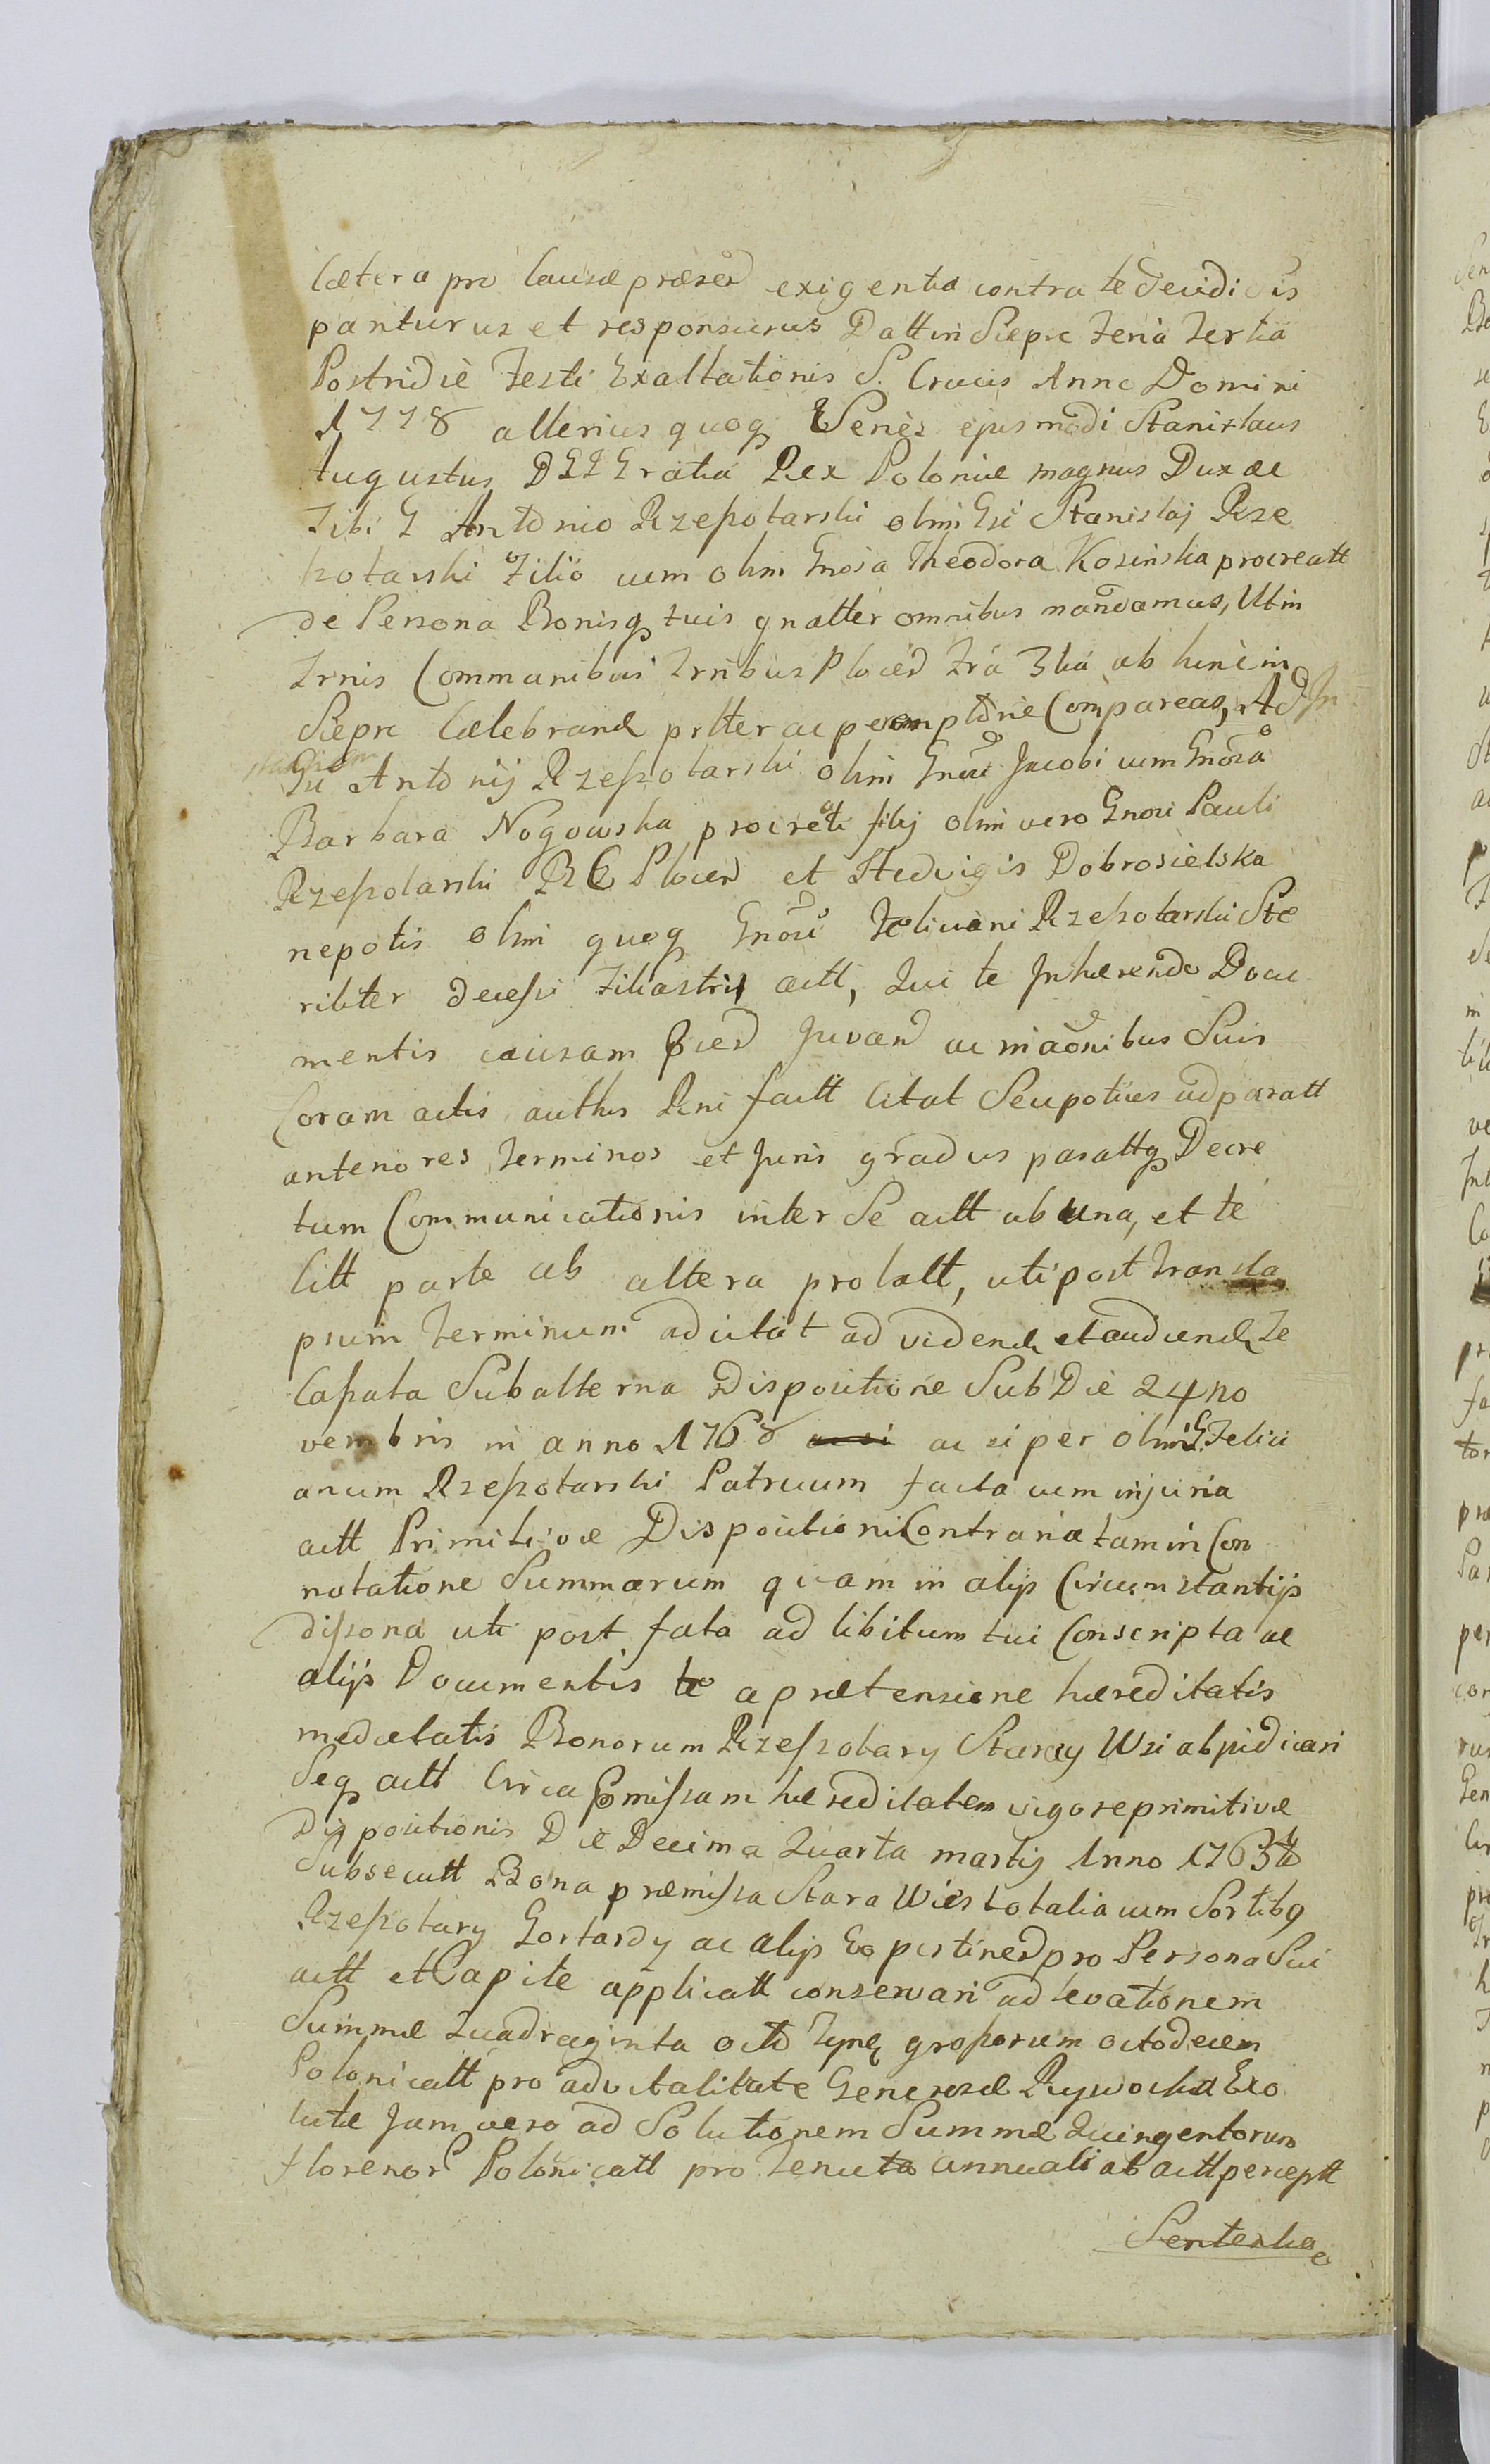 Cætera pro Causæ præsen exigentia contra te decidi vis
panturus et responsurus Datt in Sieprc Feria Tertia
Postridie Festi Exaltationis S. Crucis Anno Domini
1778 alterius quoq Seriès ejusmodi Stanislaus
Augustus D G Gratia Rex Poloniæ magnus Dux ac
Tibi G Antonio Rzeszotarski olim Gsi Stanislaj Rze
szotarski Filio cum olim Gnosa Theodora Kosinska procreatt
de Persona Bonisq tuis gnatter omnibus mandamus, Ut in
Trnis Communibus Trribus Plocen Fra 3tia ab hinc in
Sieprc Celebrand prtter ac peremptorie Compareas, Ad In
stantiam
Gsi Antonij Rzeszotarski olim Gnosi Jacobi cum Gnosa
Barbara Nogowska procreti filij olim vero Gnosi Pauli
Rzeszotarski B C Plocen et Hedvigis Dobrosielska
nepotis olim quoq Gnosi Feliciani Rzeszotarski Ste
riliter decessi Filiastri actt, Qui te Inhærendo Docu
mentis causam Pcen Juvan ac maonibus Suis
Coram actis authis Rni factt Citat Seu potius ad paratt
anteriores Terminos et Juris gradus parattq Decre
tum Communicationis inter Se actt ab una, et te
Citt parte ab altera prolatt, uti post Transla
psum Terminum adcitat ad videnq et audienq Te
Cassata Subalterna Dispositione Sub Die 24 no
vembris in anno 1768 ac si ac si per olim G. Felici
anum Rzeszotarski Patruum facta cum injuria
actt Primitivæ Dispositioni Contraria tam in Con
notatione Summarum quam in alijs Circumstantijs
dissona uti post fata ad libitum tui Conscripta ac
alijs Documentis te a prætensione hæreditatis
medietatis Bonorum Rzeszotary Starey Wsi abjudicari
Seq actt Circa Præmissam hæreditatem vigore primitivæ
Dispositionis Die Decima Quarta martij Anno 1763tio
Subsecutt Bona præmissa Stara Wies totalia cum Sortibq
Rzeszotary Gortardy ac alijs Eo pertinen pro Persona Sui
actt et Capite applicatt conservari ad levationem
Summæ Quadraginta octo Tynq grossorum octodecem
Polonicatt pro advitalitate Generosæ Rywocka Exo
lutæ Jam vero ad Solutionem Summæ Quingentorum
florenor Polonicatt pro Tenuta annuali ab actt percept
Sententiæ